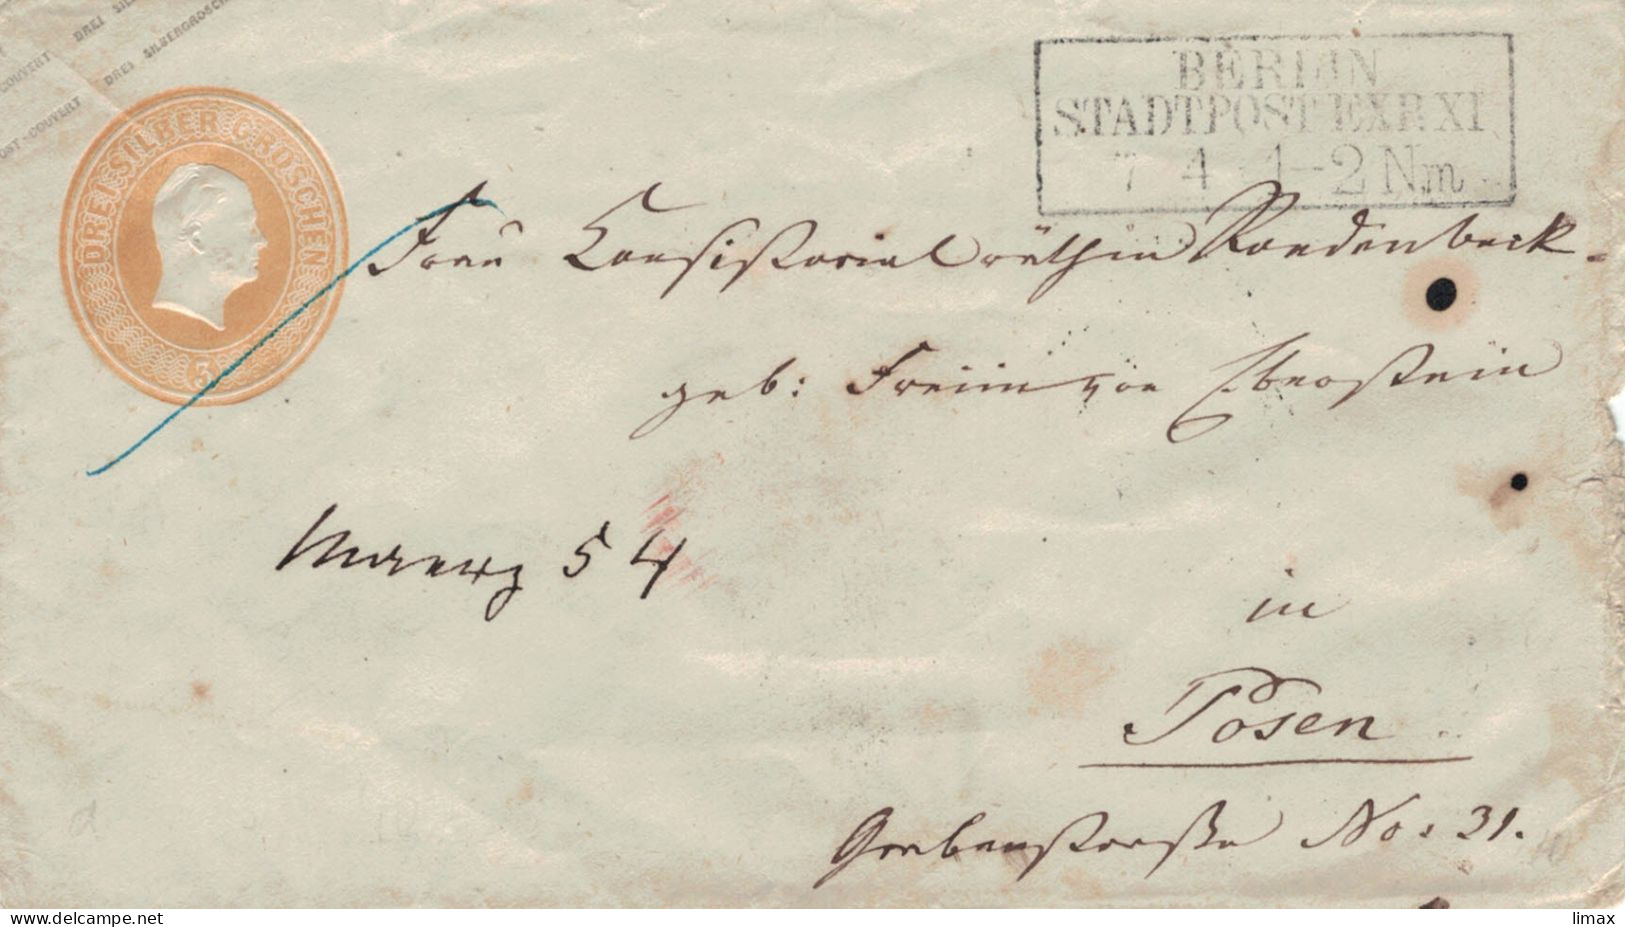 DREI SIL
POST-COUVERT DREI SILBERGROSCH
DREI SILBER GROSCHEN
3
BERLIN
STADTPOST EXP. XI
7 4 1-2 Nm
Frau Consistorialräthin Roedenbeck
geb: Freiin von Eberstein
Maerz 54
in
Posen
Grabenstraße No. 31.
limax